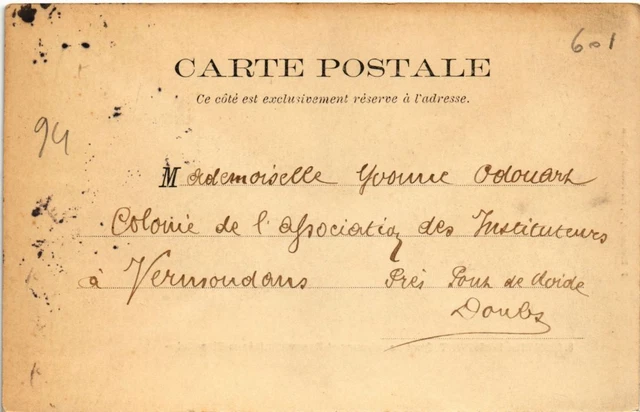 601
CARTE POSTALE
Ce côté est exclusivement réservé à l'adresse.
94
Mademoiselle Yvonne Odouart
Colonie de l'Association des Instituteurs
à Vermondans Près Pont de Roide
Doubs